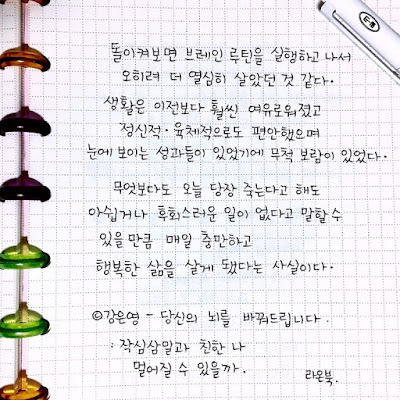 돌이켜보면 브레인 루틴을 실행하고 나서
오히려 더 열심히 살았던 것 같다.
생활은 이전보다 훨씬 여유로워졌고
정신적·육체적으로도 편안했으며
눈에 보이는 성과들이 있었기에 무척 보람이 있었다.
무엇보다도 오늘 당장 죽는다고 해도
아쉽거나 후회스러운 일이 없다고 말할 수
있을 만큼 매일 충만하고
행복한 삶을 살게 됐다는 사실이다.
©강은영 - 당신의 뇌를 바꿔드립니다.
: 작심삼일과 친한 나
멀어질 수 있을까.
라온북.